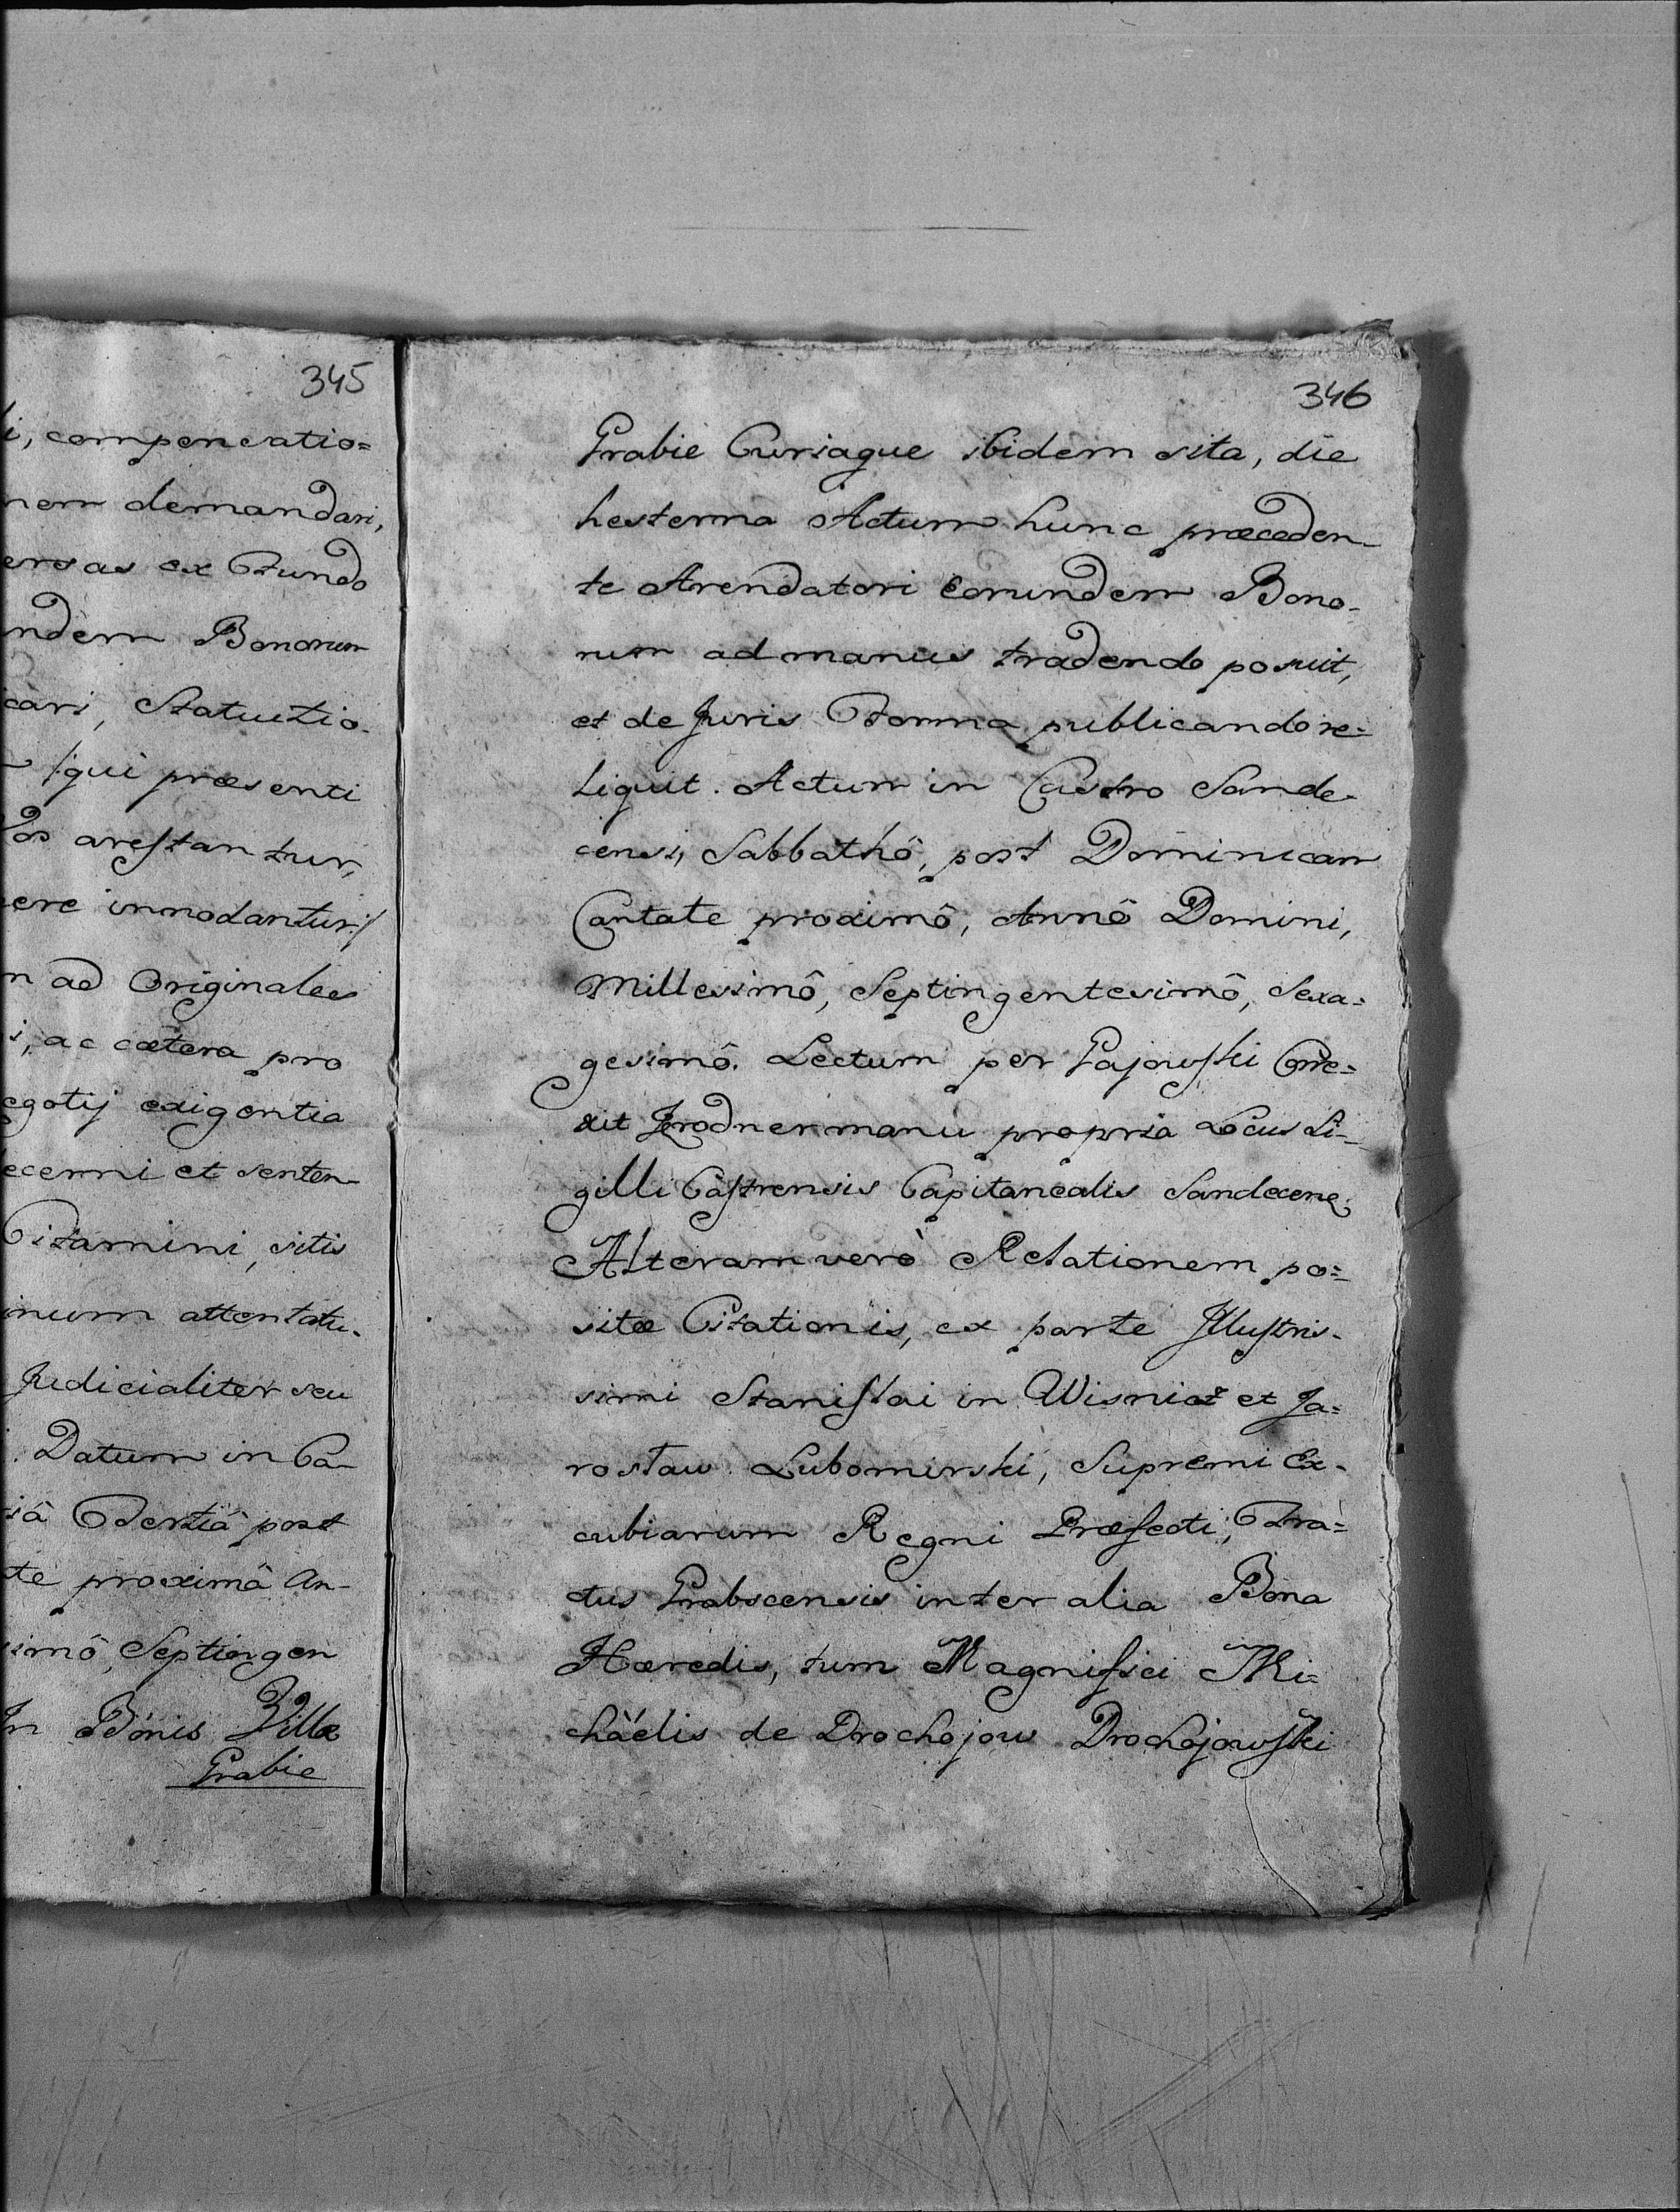 345
i, compensatio=
nem demandari,
ersas ex Fundo
ndem Bonorum
cari, Statuitio-
/qui præsenti
arestantur,
ere innodantur:/
n ad Originales
i, ac cætera pro
egotij exigentia
ecerni et senten-
Citamini, sitis
inum attentatu-
Judicialiter seu
. Datum in Ca-
iâ Tertiâ post
te proximâ An-
imô, Septingen
In Bonis Villæ
Grabie
346
Grabie Curiaque ibidem sita, die
hesterna Actum hunc præceden-
te Arendatori Eorundem Bono-
rum ad manus tradendo posuit,
et de Juris Forma publicando re=
liquit. Actum in Castro Sande-
censi, Sabbathô, post Dominicam
Cantate proximô, Annô Domini,
Millesimô, Septingentesimô, Sexa=
gesimô. Lectum per Gajowski Corre=
xit Brodner manu propria Locus Si-
gilli Castrensis Capitanealis Sandecens:
Alteram verò Relationem po=
sitæ Citationis, ex parte Illustris-
simi Stanislai in Wisnicz et Ja=
rosław Lubomirski, Supremi Ex-
cubiarum Regni Præfecti, Tra=
ctus Grabscensis inter alia Bona
Hæredis, tum Magnifici Mi=
chàélis de Drochojow Drochojowski